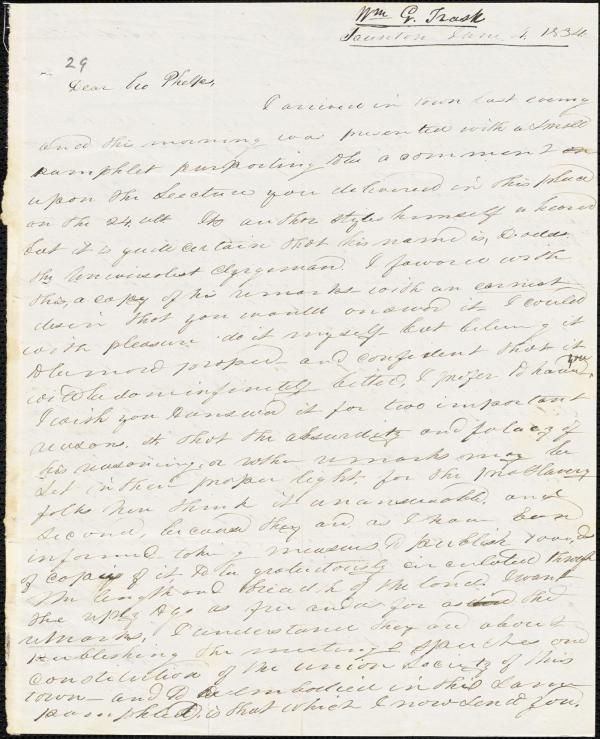 Wm G. Trask
Taunton June 4. 1834.
29
Dear Bro Phelps,
I arrived in town last evening
and this morning was presented with a small
pamphlet purporting to be a comment
upon the Lecture you delivered in this place
on the 24, ult Its author styles himself a hearer
but it is quite certain that his name is, Dodds,
the Universalist Clergyman. I forward with
this, a copy of his remarks with an earnest
desire that you would answer it. I could
with pleasure do it myself but believing it
to be more proper and confident that it
will be done infinitely better, I prefer to have you
I wish you to answer it for two important
reasons. 1t that the absurdity and falacy of
his reasoning, or rather remarks may be
set in their proper light. for the proslavery
folks here think it unanswerable. and
second, because they are as I have been
informed taking measures to publish
of copies of it to be gratuitously circulated through
the length and breadth of the land. I want
the reply to go as free and as far as the
remarks. I understand they are about
publishing the meeting & speeches and
constitution of the union Society of this
town - and to be embodied in this same
pamphlet, is that which I now send you.